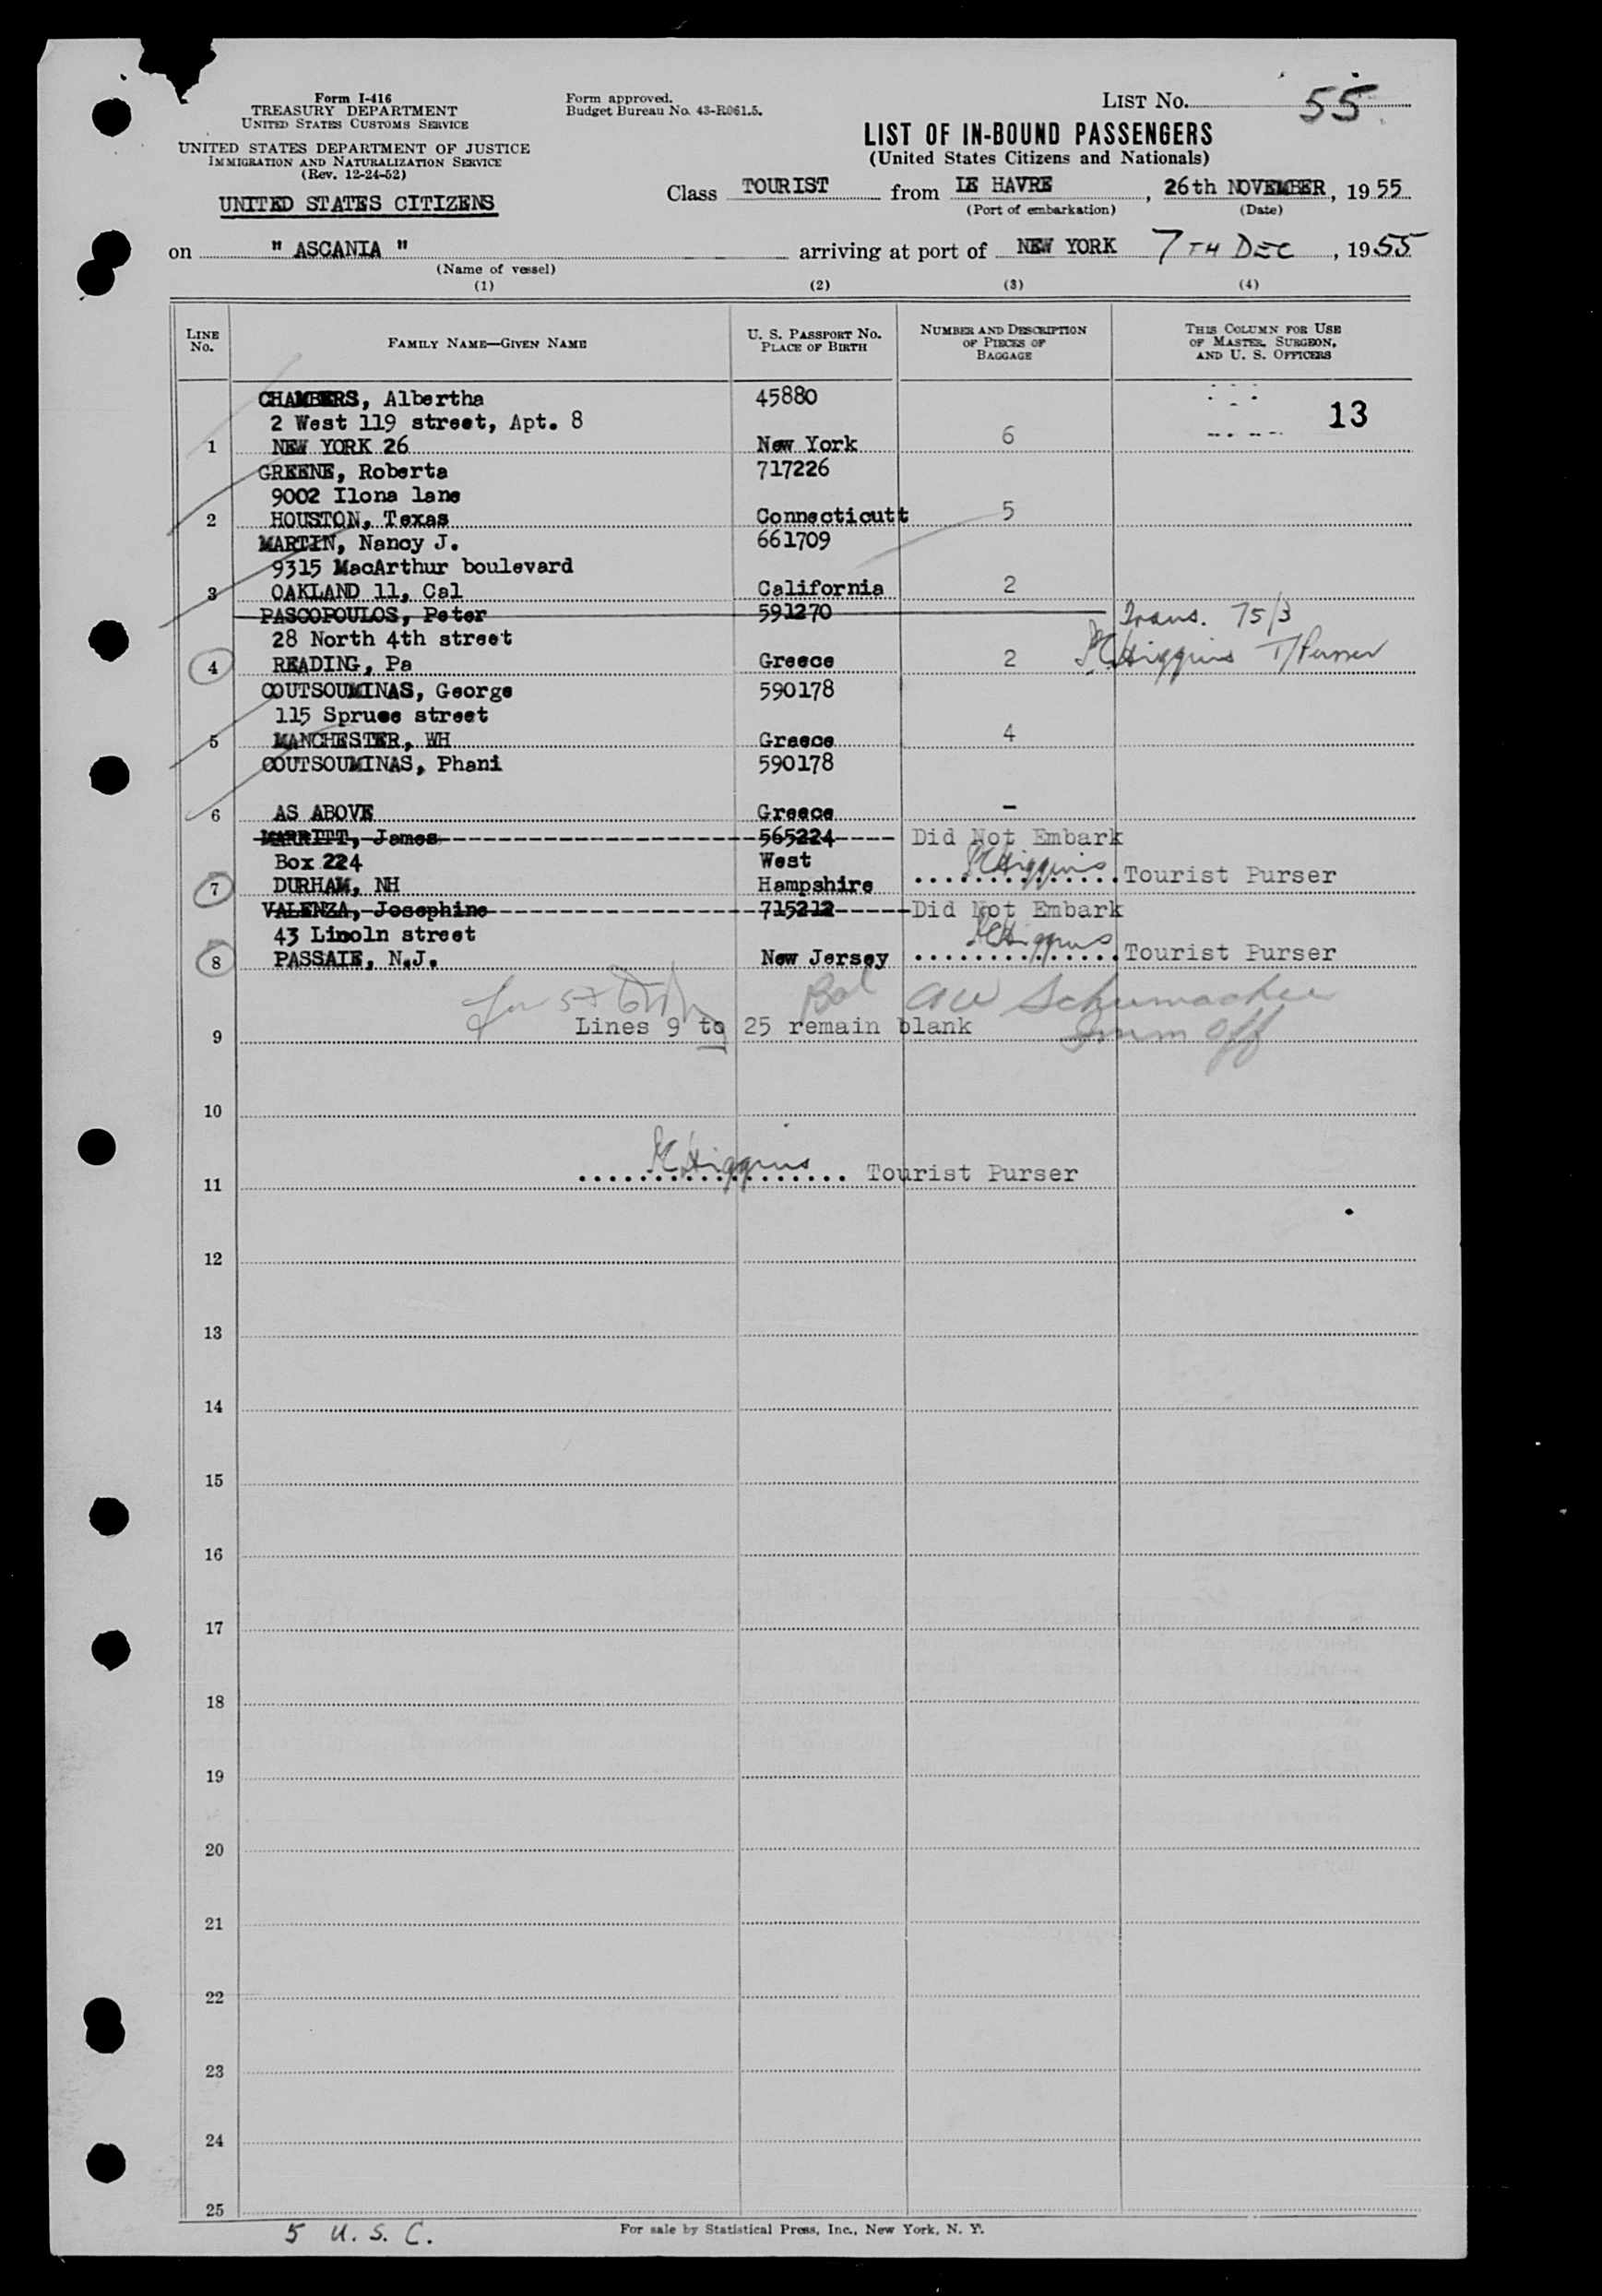 Form I-416
TREASURY DEPARTMENT
UNITED STATES CUSTOMS SERVICE
UNITED STATES DEPARTMENT OF JUSTICE
IMMIGRATION AND NATURALIZATION SERVICE
(Rev. 12-24-52)
UNITED STATES CITIZENS
Form approved.
Budget Bureau No. 43-R061.5.
LIST NO. 55
LIST OF IN-BOUND PASSENGERS
(United States Citizens and Nationals)
Class TOURIST from LE HAVRE, 26th NOVEMBER, 1955
(Port of embarkation) (Date)
on " ASCANIA " arriving at port of NEW YORK 7TH DEC, 1955
(Name of vessel)
(1) (2) (3) (4)
LINE NO. FAMILY NAME—GIVEN NAME U. S. PASSPORT NO. PLACE OF BIRTH NUMBER AND DESCRIPTION OF PIECES OF BAGGAGE THIS COLUMN FOR USE OF MASTER, SURGEON, AND U. S. OFFICERS
CHAMBERS, Albertha 45880
2 West 119 street, Apt. 8 13
1 NEW YORK 26 New York 6
GREENE, Roberta 717226
9002 Ilona lane
2 HOUSTON, Texas Connecticutt 5
MARTIN, Nancy J. 661709
9315 MacArthur boulevard
3 OAKLAND 11, Cal California 2
PASCOPOULOS, Peter 591270 Trans. 75/3
28 North 4th street
4 READING, Pa Greece 2 Higgins T/Purser
COUTSOUMINAS, George 590178
115 Spruce street
5 MANCHESTER, WH Greece 4
COUTSOUMINAS, Phani 590178
6 AS ABOVE Greece -
MARRITT, James 565224 Did Not Embark
Box 224 West
7 DURHAM, NH Hampshire Higgins Tourist Purser
VALENZA, Josephine 715212 Did Not Embark
43 Lincoln street
8 PASSAIE, N.J. New Jersey Higgins Tourist Purser
Bal AW Schumacher
9 Lines 9 to 25 remain blank Imm Off
10
11 Higgins Tourist Purser
12
13
14
15
16
17
18
19
20
21
22
23
24
25
5 U. S. C.
For sale by Statistical Press, Inc., New York, N. Y.